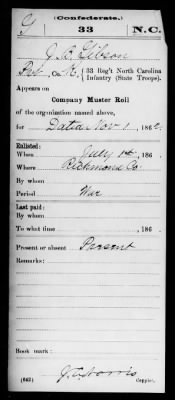 (Confederate.)
G 33 N.C.
J. B. Gibson
Pvt, Co. K, 33 Reg't North Carolina
Infantry (State Troops).
Appears on
Company Muster Roll
of the organization named above,
for Dated Nov 1, 1862.
Enlisted:
When July 14, 186 .
Where Richmond Co
By whom
Period War
Last paid:
By whom
To what time , 186 .
Present or absent Present
Remarks:
Book mark:
(642) Copyist.